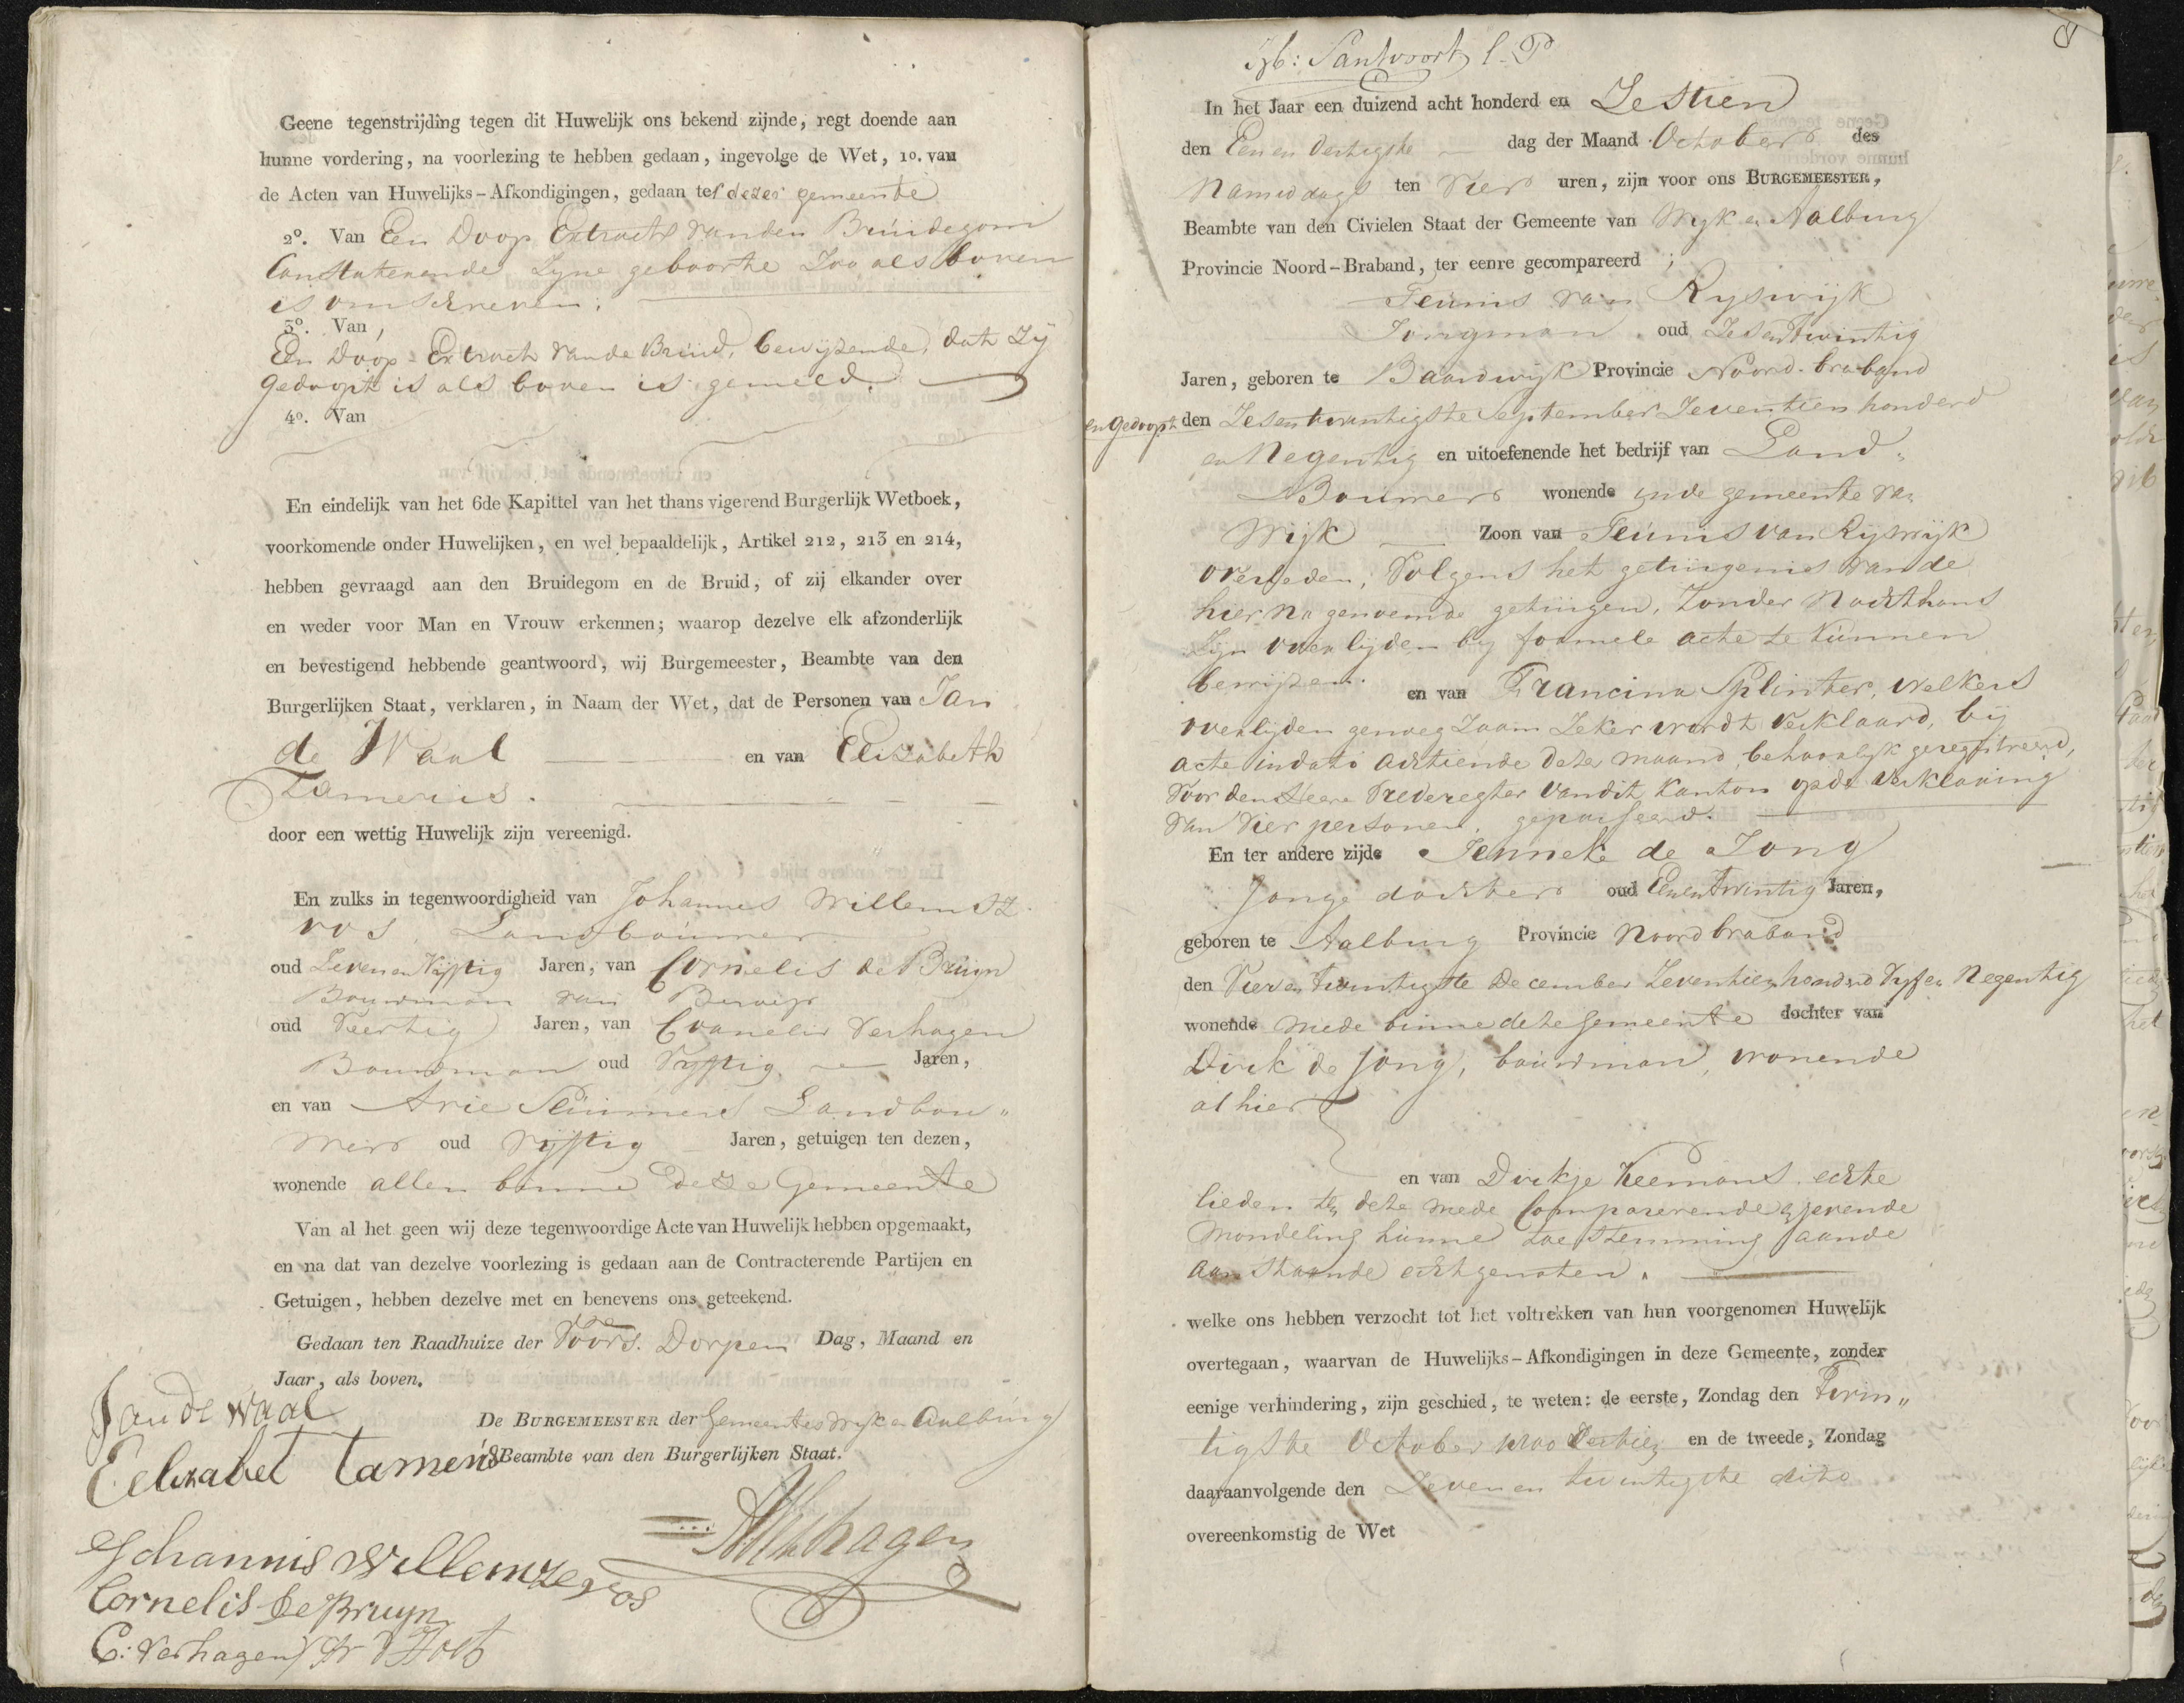 Geene tegenstrijding tegen dit Huwelijk ons bekend zijnde, regt doende aan
hunne vordering, na voorlezing te hebben gedaan, ingevolge de Wet, 1o. van
de Acten van Huwelijks-Afkondigingen, gedaan te dezer gemeente
2o. Van Een Doop Extract van den Bruidegom
Constaterende Zyne geboorte Zoo als boven
is omschreven.
3o. Van,
Een Doop-Extract van de Bruid, bewijzende, dat Zÿ
gedoopt is als boven is gemeld.
4o. Van
En eindelijk van het 6de Kapittel van het thans vigerend Burgerlijk Wetboek,
voorkomende onder Huwelijken, en wel bepaaldelijk, Artikel 212, 213 en 214,
hebben gevraagd aan den Bruidegom en de Bruid, of zij elkander over
en weder voor Man en Vrouw erkennen; waarop dezelve elk afzonderlijk
en bevestigend hebbende geantwoord, wij Burgemeester, Beambte van den
Burgerlijken Staat, verklaren, in Naam der Wet, dat de Personen van Jan
de Waal en van Elizabeth
Tamerus.
door een wettig Huwelijk zijn vereenigd.
En zulks in tegenwoordigheid van Johannes Willemsz
vos Landbouwer
oud Zeven en Vijftig Jaren, van Cornelis de Bruijn
Bouwman van Beroep
oud Veertig Jaren, van Cornelis Verhagen
Bouwman oud Vyftig Jaren,
en van Arie Land bou„
wer oud Vijftig Jaren, getuigen ten dezen,
wonende allen binne deze Gemeente
Van al het geen wij deze tegenwoordige Acte van Huwelijk hebben opgemaakt,
en na dat van dezelve voorlezing is gedaan aan de Contracterende Partijen en
Getuigen, hebben dezelve met en benevens ons geteekend.
Gedaan ten Raadhuize der Voors. Dorpen Dag, Maand en
Jaar, als boven.
Jan de Waal
De BURGEMEESTER der Gemeentes Wyk en Aalburg
Eelizabet Tamerus
Beambte van den Burgerlijken Staat.
Verhagen
Johannis Willemze vos
Cornelis de Bruyn
C: Verhagen
Santvoort l. P
In het Jaar een duizend acht honderd en Zestien
den Een en Dertigste dag der Maand October des
Namiddags ten Vier uren, zijn voor ons BURGEMEESTER,
Beambte van den Civielen Staat der Gemeente van Wyk en Aalburg
Provincie Noord-Braband, ter eenre gecompareerd ;
Teunis van Ryswijk
Jongman oud Zes en twintig
Jaren, geboren te Baardwyk Provincie Noord-braband
en gedoopt den Zes en twintigste September Zeventien honderd
en Negentig en uitoefenende het bedrijf van Land„
Bouwer wonende in de gemeente van
Wijk Zoon van Teunis van Rijswijk
overleden, Volgens het getuigenis van de
hier na genoemde getuigen, Zonder Nochthans
Zyn overlyden by formele acte te kunnen
bewijzen. en van Francina Splinter, welkers
overlyden genoegzaam Zeker wordt verklaard, bij
acte in dato achtiende dezer maand, behoorlyk geregistreerd,
voor den Heere Vrederegter van dit kanton op de verklaring
van vier personen, gepasseerd.
En ter andere zijde Jenneke de Jong
Jonge dochter oud Een en twintig Jaren,
geboren te Aalburg Provincie Noord braband
den Vier en twintigste December Zeventien honderd Vyf en Negentig
wonende mede binne deze Gemeente dochter van
Dirk de Jong, bouwman, wonende
alhier
en van Dirkje Veemans, echte
lieden ten deze mede Comparerende gevende
Mondeling hunne toestemming aan de
aanstaande echtgenoten.
welke ons hebben verzocht tot het voltrekken van hun voorgenomen Huwelijk
overtegaan, waarvan de Huwelijks-Afkondigingen in deze Gemeente, zonder
eenige verhindering, zijn geschied, te weten: de eerste, Zondag den Twin„
tigste October en de tweede, Zondag
daaraanvolgende den Zeven en twintigste dito
overeenkomstig de Wet